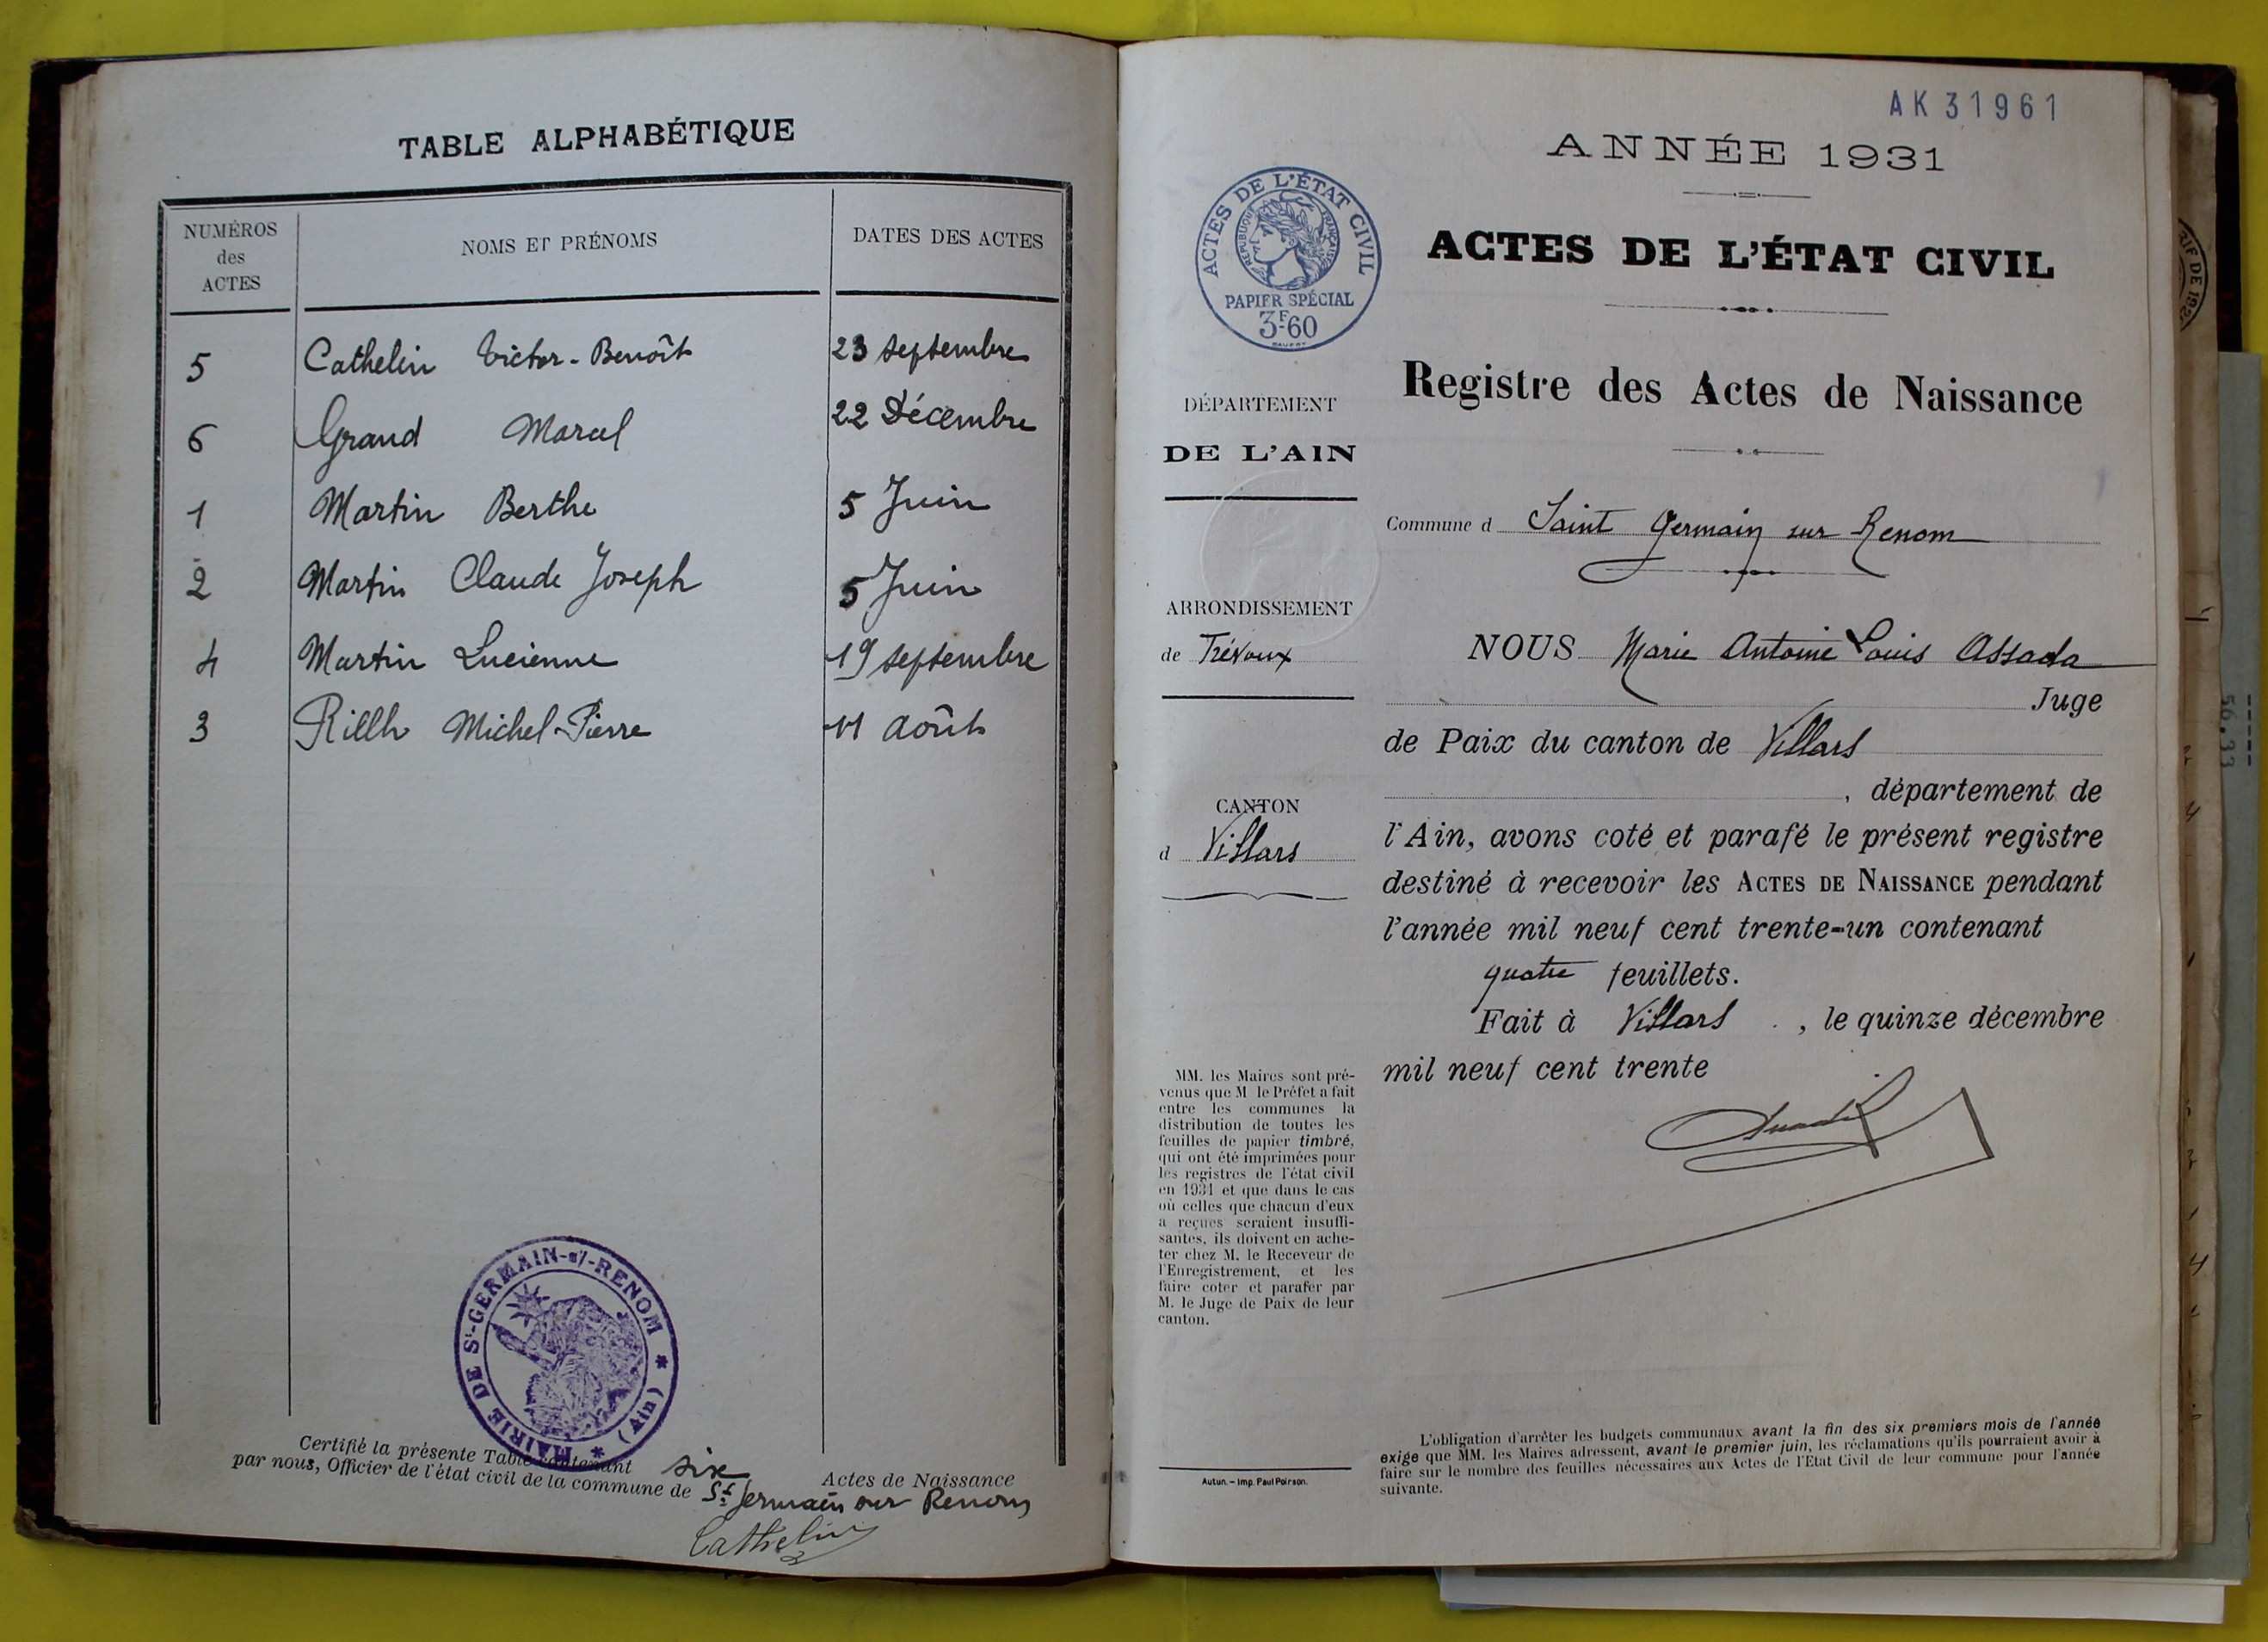 TABLE ALPHABÉTIQUE
NUMÉROS des ACTES
NOMS ET PRÉNOMS
DATES DES ACTES
5 Cathelin Victor-Benoît 23 septembre
6 Grand Marcel 22 Décembre
1 Martin Berthe 5 Juin
2 Martin Claude Joseph 5 Juin
4 Martin Lucienne 19 septembre
3 Michel-Pierre 11 août
MAIRIE DE St-GERMAIN-s/-RENOM * (Ain) *
Certifié la présente Table contenant six Actes de Naissance
par nous, Officier de l'état civil de la commune de St Germain sur Renom
Cathelin
AK31961
ANNÉE 1931
ACTES DE L'ÉTAT CIVIL
RÉPUBLIQUE FRANÇAISE
PAPIER SPÉCIAL
3F60
ACTES DE L'ÉTAT CIVIL
Registre des Actes de Naissance
DÉPARTEMENT
DE L'AIN
Commune d Saint Germain sur Renom
ARRONDISSEMENT
de Trévoux
NOUS Marie Antoine Louis Assada
Juge
de Paix du canton de Villars
, département de
CANTON
d Villars
l'Ain, avons coté et parafé le présent registre
destiné à recevoir les ACTES DE NAISSANCE pendant
l'année mil neuf cent trente-un contenant
quatre feuillets.
Fait à Villars , le quinze décembre
mil neuf cent trente
MM. les Maires sont pré-
venus que M le Préfet a fait
entre les communes la
distribution de toutes les
feuilles de papier timbré,
qui ont été imprimées pour
les registres de l'état civil
en 1931 et que dans le cas
où celles que chacun d'eux
a reçues seraient insuffi-
santes, ils doivent en ache-
ter chez M. le Receveur de
l'Enregistrement, et les
faire coter et parafer par
M. le Juge de Paix de leur
canton.
Autun. – Imp. Paul Poirson.
L'obligation d'arrêter les budgets communaux avant la fin des six premiers mois de l'année
exige que MM. les Maires adressent, avant le premier juin, les réclamations qu'ils pourraient avoir à
faire sur le nombre des feuilles nécessaires aux Actes de l'Etat Civil de leur commune pour l'année
suivante.